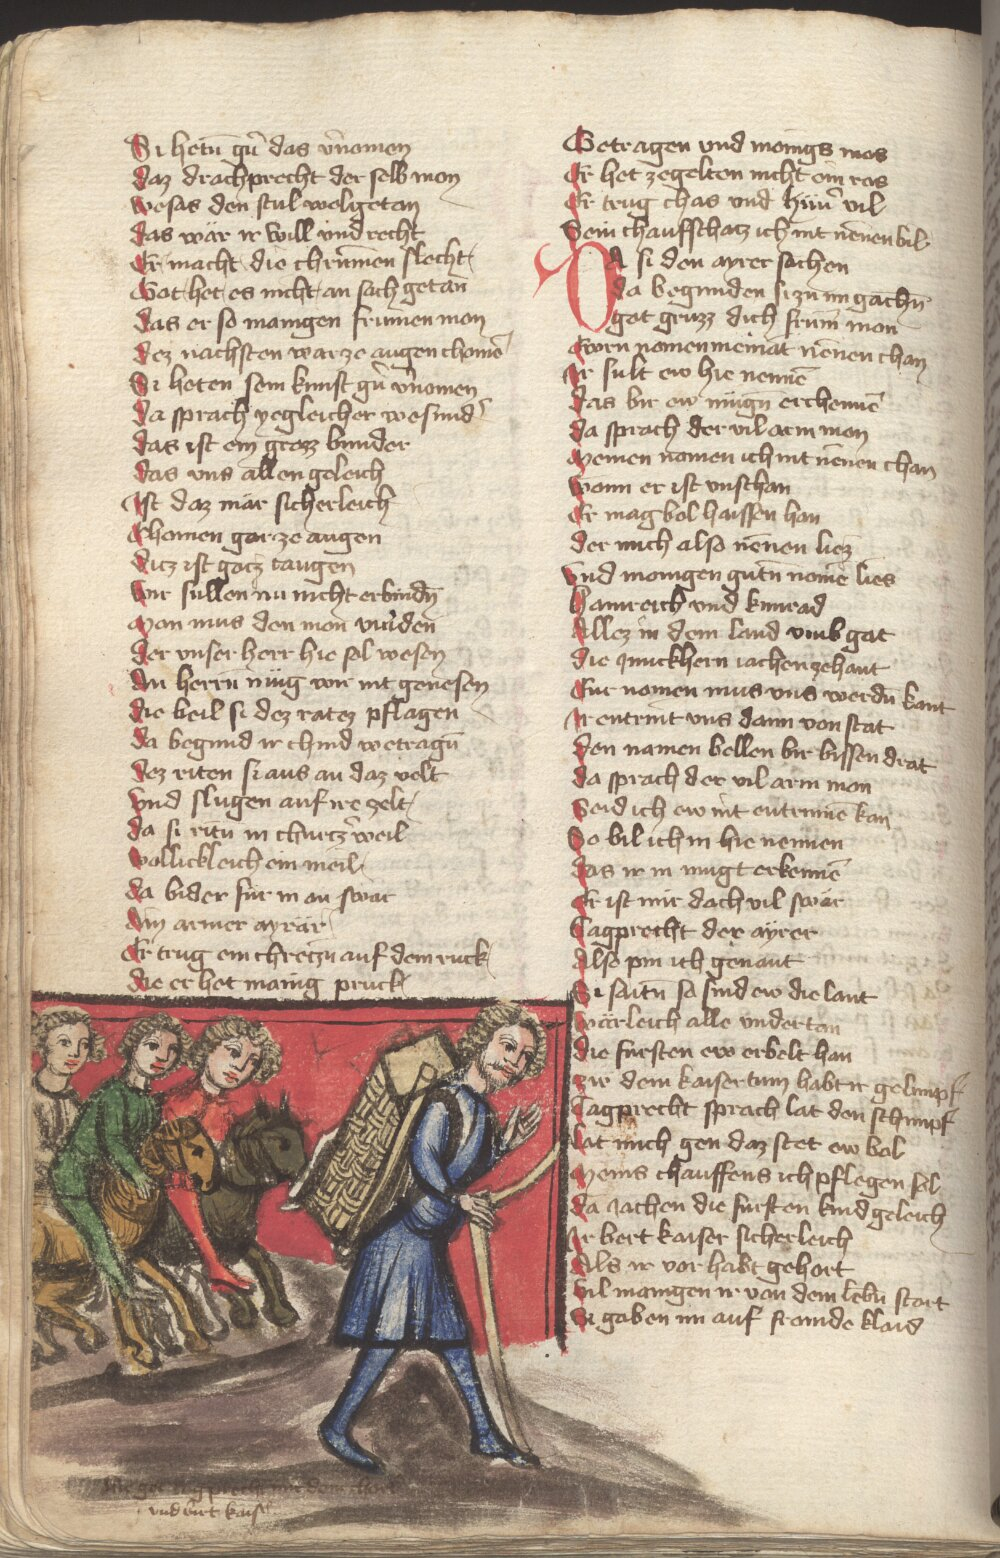 Si hetū gūͤ das vˀnomen
daz drachprecht der selb mon
wesas den stul wolgetan
das wär ir will vnd recht
Er macht die chrūmen slecht
Got het es nicht an sach getan
das er so manigen frumen mon
dez nachsten war ze augen chomē
Si heten sein kunst gūͤ vˀnomen
da sprach yegleicher wesundˀ
das ist ein grozz bunder
das vns allen geleich
Ist daz mär sicherleich
Chomen gar ze augen
ditz ist gotz taugen
Wir sullen nu nicht erbindn̄
Mon mus den mon vinden
der vnser herr hie sol wesen
An herrn müg wir nit genesen
die beil si dez ratez pflagen
da begund ir chind wetragn̄
dez riten si aus an daz velt
Vnd slugen auf ire zelt
da si ritn̄ in churtzˀ weil
Vollickleich ein meil
da bider für in an swär
Ain armer ayrär
Er trug ein chretzn̄ auf dem ruck
die er het manig pruck
Getragen vnd monigs mos
Er het zegelten nicht ein ros
Er trug chas vnd hūnˀ vil
Sein chauffschatz ich nit nēnen bil
Da si den ayrer sachen
da begunden si zu im gachn̄
got gruzz dich frum mon
Ewrn nomen meināt nēnen chan
Ir sult ew hie nennē
das bir ew mügn̄ erchennē
da sprach der vil arm mon
Meinen nomen ich nit nēnen chan
Wann er ist vnschan
Er mag bol haissen han
der mich also nēnen liez
Vnd monigen gutn̄ nomē lies
Hainreich vnd kunrad
Allez in dem land vmb gat
die Junckhern iachen zehant
Eur nomen mus vns werdn̄ kant
Ir entrint vns dann von stat
den namen bellen bir bissen drat
da sprach der vil arm mon
Seid ich ew nit entrinnē kan
So bil ich in hie nennen
das ir in mugt erkennē
Er ist mir dach vil swär
Tagprecht der ayrer
Also pin ich genant
Si saitn̄ so sind ew die lant
Wärleich alle vndertan
die fursten ew erbelt han
Zw dem kaisertum habt ir gelimpf
Tagprecht sprach lat den schimpf
Lat mich gen daz stet ew bol
Meins chauffens ich pflegen sol
da Jachen die fursten kind geleich
Ir bert kaiser sicherleich
Als ir vor habt gehort
Vil manigen ir von dem lebn̄ stort
Si gaben im auf fromde klaid
vnd wirt kaisˀ